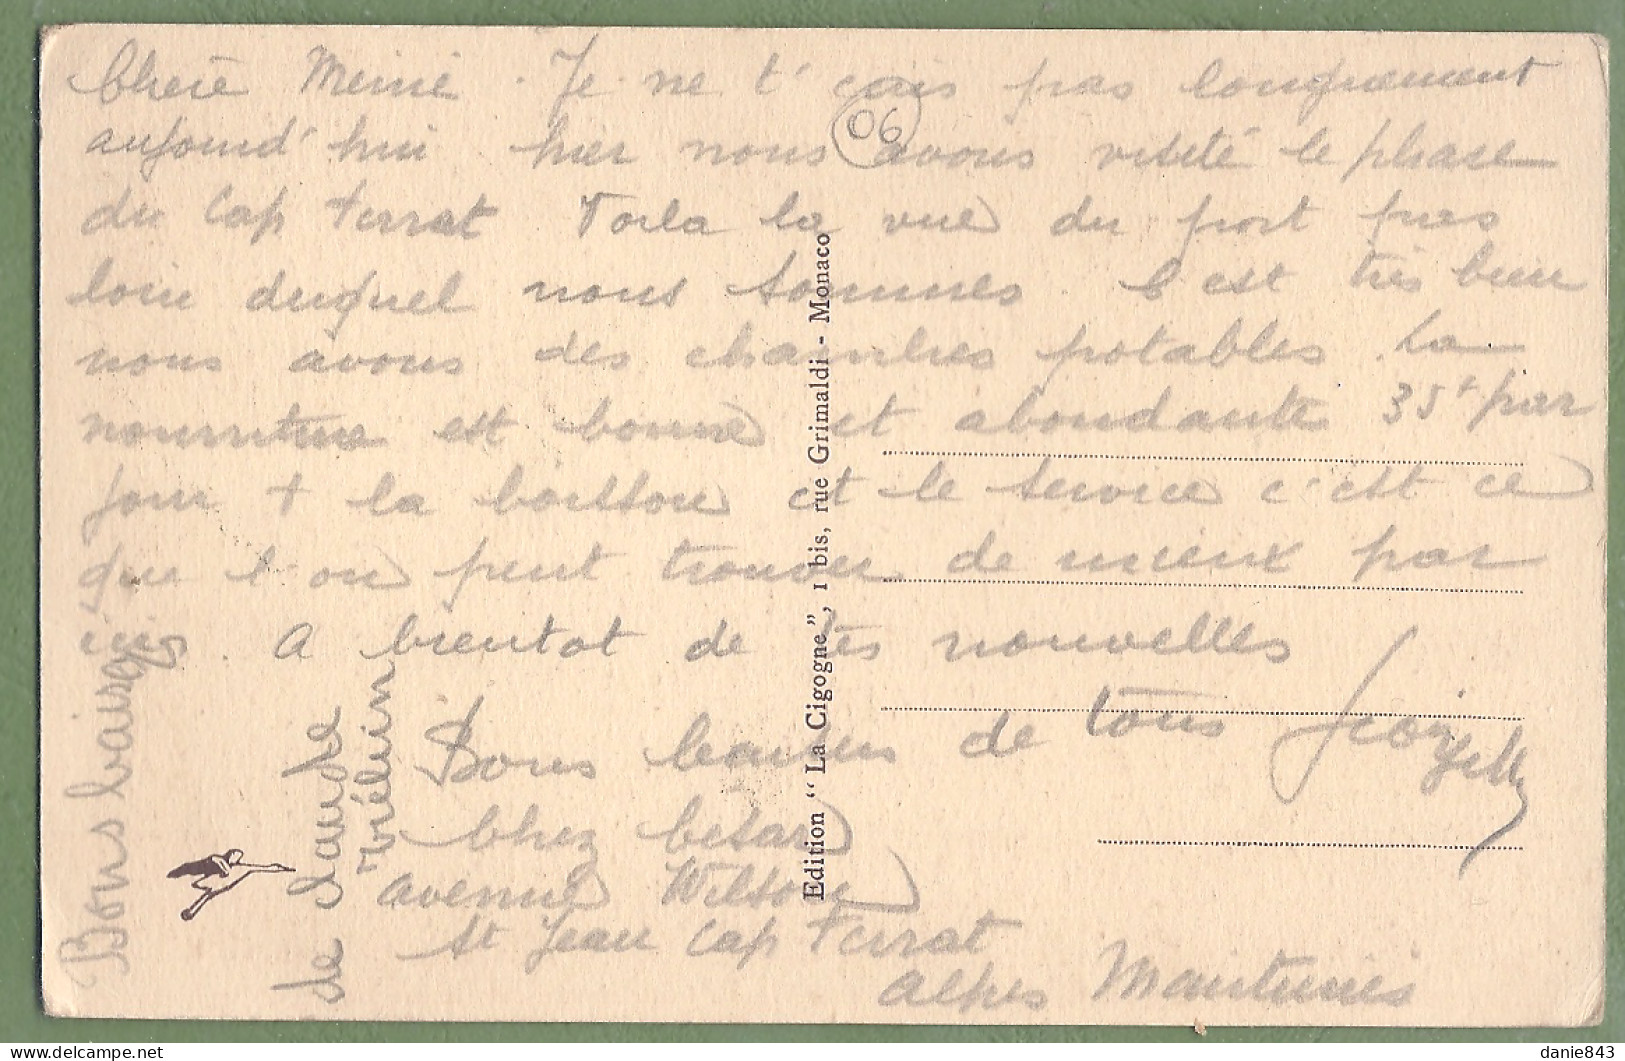 Chère Mémé. Je ne t'écris pas longuement
aujourd'hui hier nous avons visité le phare
du Cap Ferrat Voila la vue du port pres
loin duquel nous sommes. C'est très bien
nous avons des chambres potables. La
nourriture est bonne et abondante 35f par
jour + la boisson et le service c'est ce
que l'on peut trouver de mieux par
ici. A bientot de tes nouvelles
Bons baisers de tous
Chez Cesar
avenue Wilson
St Jean Cap Ferrat
Alpes Maritimes
Bons baisers
de
06
Edition "La Cigogne", 1 bis, rue Grimaldi - Monaco
danie843